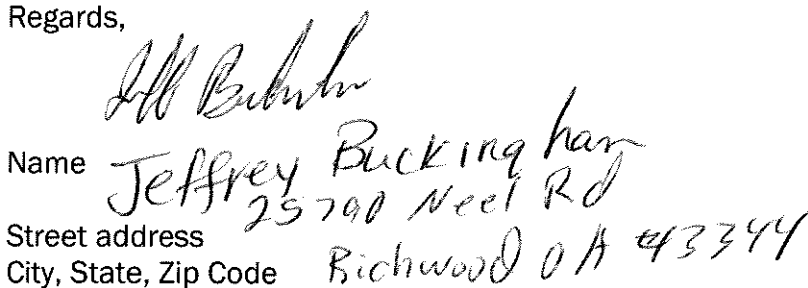 Regards,
Jeff
Name Jeffrey Buckingham
Street address 25790 Neel Rd
City, State, Zip Code Richwood OH 43344